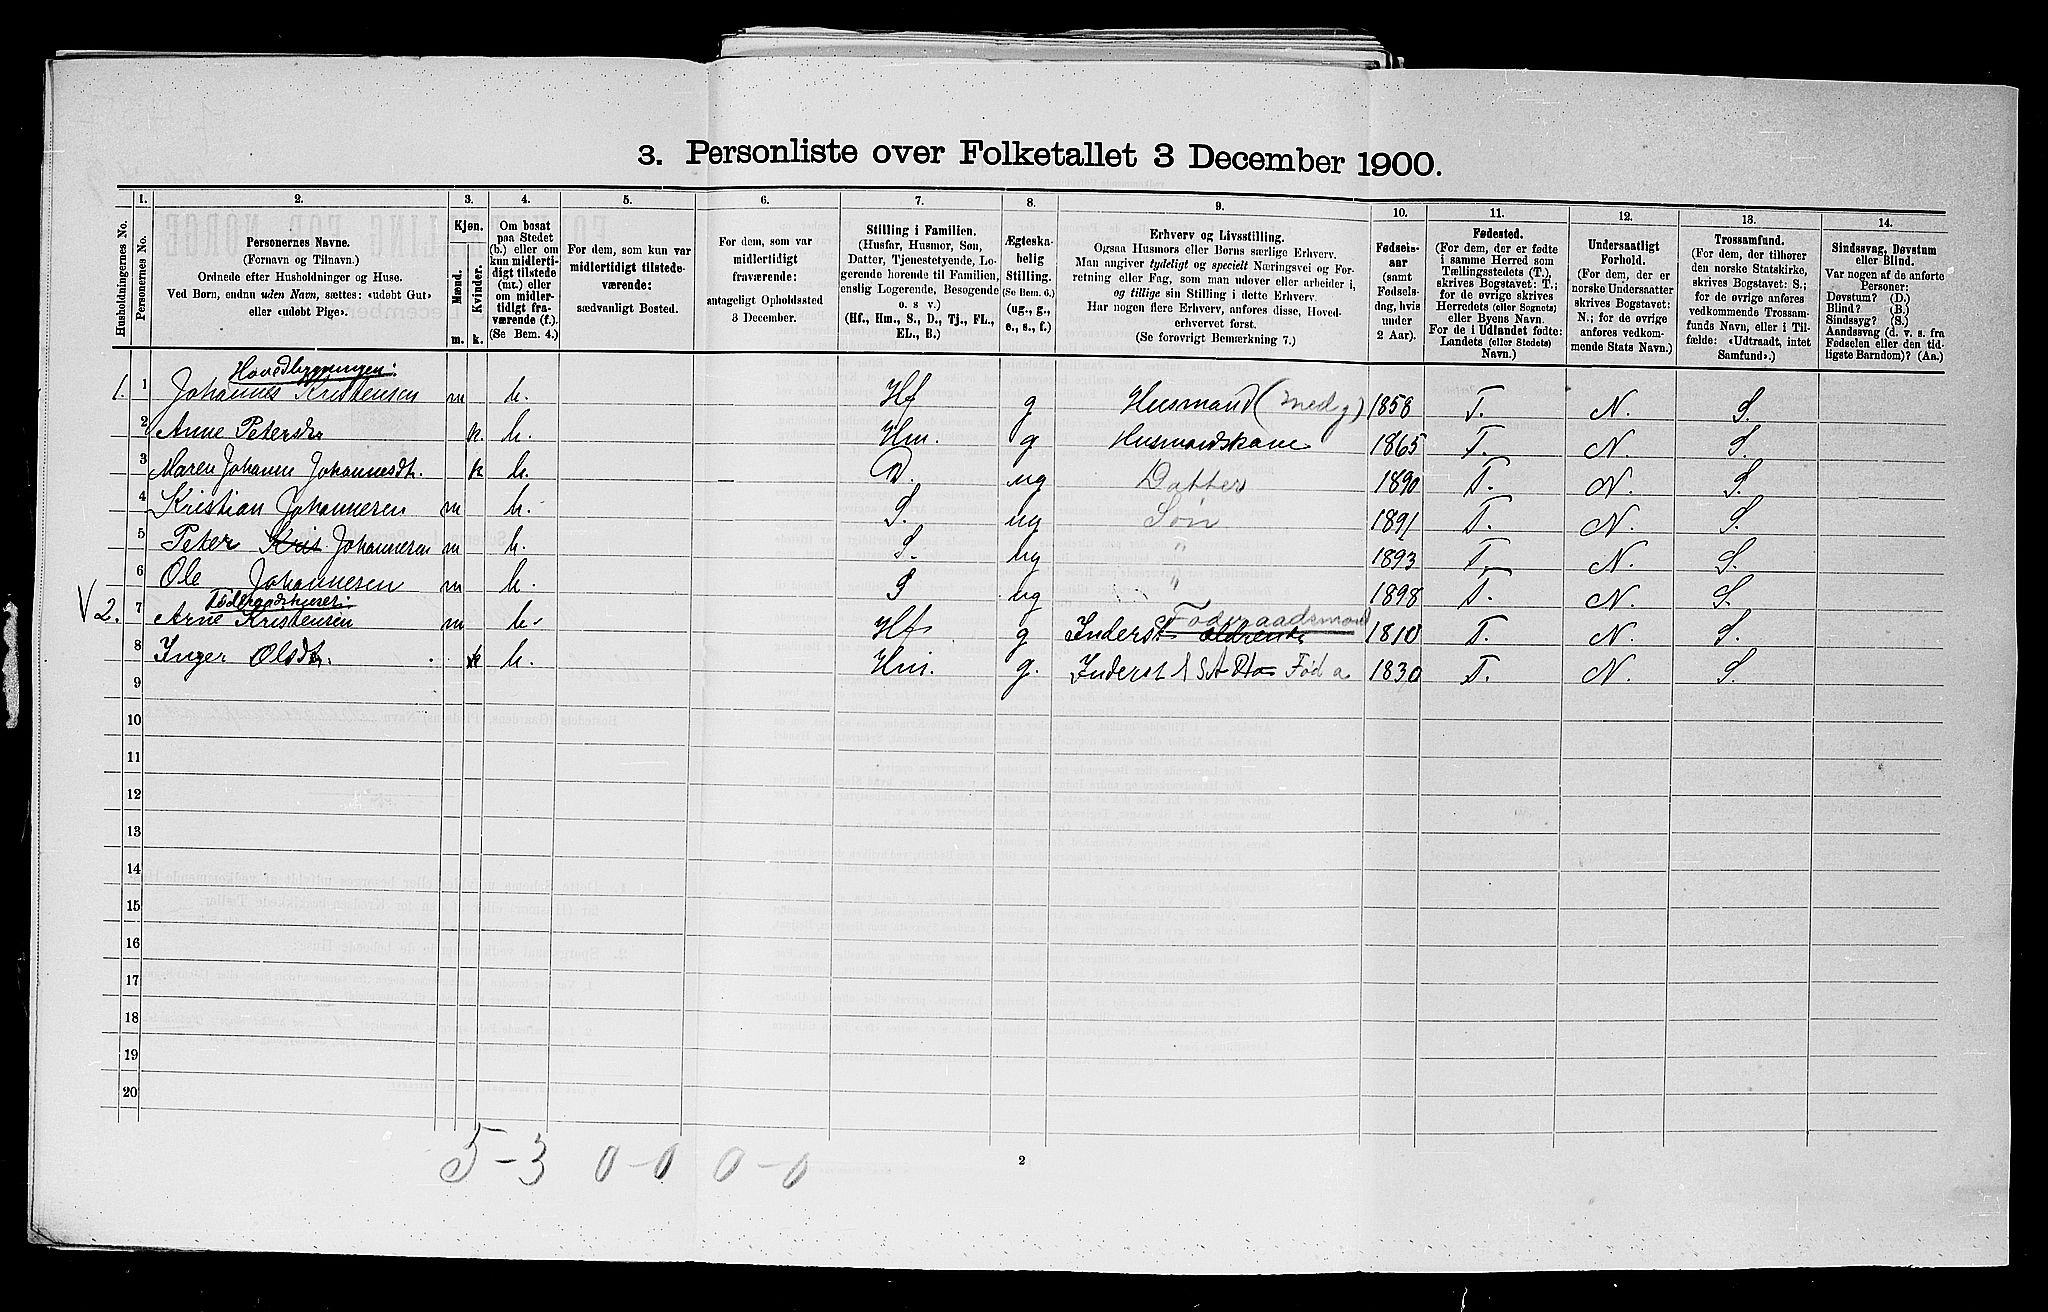 3. Personliste over Folketallet 3 December 1900.
Husholdningernes No.
1.
Personernes No.
2.
Personernes Navne.
(Fornavn og Tilnavn.)
Ordnede efter Husholdninger og Huse.
Ved Børn, endnu uden Navn, sættes: «udøbt Gut»
eller «udøbt Pige».
3.
Kjøn.
Mænd.
Kvinder.
m. k.
4.
Om bosat
paa Stedet
(b.) eller om
kun midlerti-
digt tilstede
(mt.) eller
om midler-
tidigt fra-
værende (f.).
(Se Bem. 4.)
5.
For dem, som kun var
midlertidigt tilstede-
værende:
sædvanligt Bosted.
6.
For dem, som var
midlertidigt
fraværende:
antageligt Opholdssted
3 December.
7.
Stilling i Familien.
(Husfar, Husmor, Søn,
Datter, Tjenestetyende, Lo-
gerende hørende til Familien,
enslig Logerende, Besøgende
o. s. v.)
(Hf., Hm., S., D., Tj., FL.,
EL., B.)
8.
Ægteska-
belig
Stilling.
(Se Bem. 6.)
(ug., g.,
e., s., f.)
9.
Erhverv og Livsstilling.
Ogsaa Husmors eller Børns særlige Erhverv.
Man angiver tydeligt og specielt Næringsvei og For-
retning eller Fag, som man udøver eller arbeider i,
og tillige sin Stilling i dette Erhverv.
Har nogen flere Erhverv, anføres disse, Hoved-
erhvervet først.
(Se forøvrigt Bemærkning 7.)
10.
Fødsels-
aar
(samt
Fødsels-
dag, hvis
under
2 Aar).
11.
Fødested.
(For dem, der er fødte
i samme Herred som
Tællingsstedets (T.),
skrives Bogstavet: T.;
for de øvrige skrives
Herredets (eller Sognets)
eller Byens Navn.
For de i Udlandet fødte:
Landets (eller Stedets)
Navn.)
12.
Undersaatligt
Forhold.
(For dem, der er
norske Undersaatter
skrives Bogstavet:
N.; for de øvrige
anføres vedkom-
mende Stats Navn.)
13.
Trossamfund.
(For dem, der tilhører
den norske Statskirke,
skrives Bogstavet: S.;
for de øvrige anføres
vedkommende Trossam-
funds Navn, eller i Til-
fælde: «Udtraadt, intet
Samfund».)
14.
Sindssvag, Døvstum
eller Blind.
Var nogen af de anførte
Personer:
Døvstum? (D.)
Blind? (B.)
Sindssyg? (S.)
Aandssvag (d. v. s. fra
Fødselen eller den tid-
ligste Barndom)? (Aa.)
Hovedbygningen:
1. 1 Johannes Kristensen m b. Hf g Husmand (med g) 1858 T. N. S.
2 Anne Petersdr k b. Hm. g Husmandskone 1865 T. N. S.
3 Maren Johanne Johannesdt. k b. D. ug Datter 1890 T. N. S.
4 Kristian Johannesen m b. S. ug Søn 1891 T. N. S.
5 Peter Kris Johannesen m b. S. ug " 1893 T. N. S.
6 Ole Johannesen m b. S ug " 1898 T. N. S.
Föderaadshuset:
V 2. 7 Arne Kristensen m b. Hf. g Inderst Föderaadsmand 1810 T. N. S.
8 Inger Olsdt. k b. Hm. g. Inderst Fød a 1830 T. N. S.
9
10
11
12
13
14
15
16
17
18
19
20
5-3 0-0 0-0
2